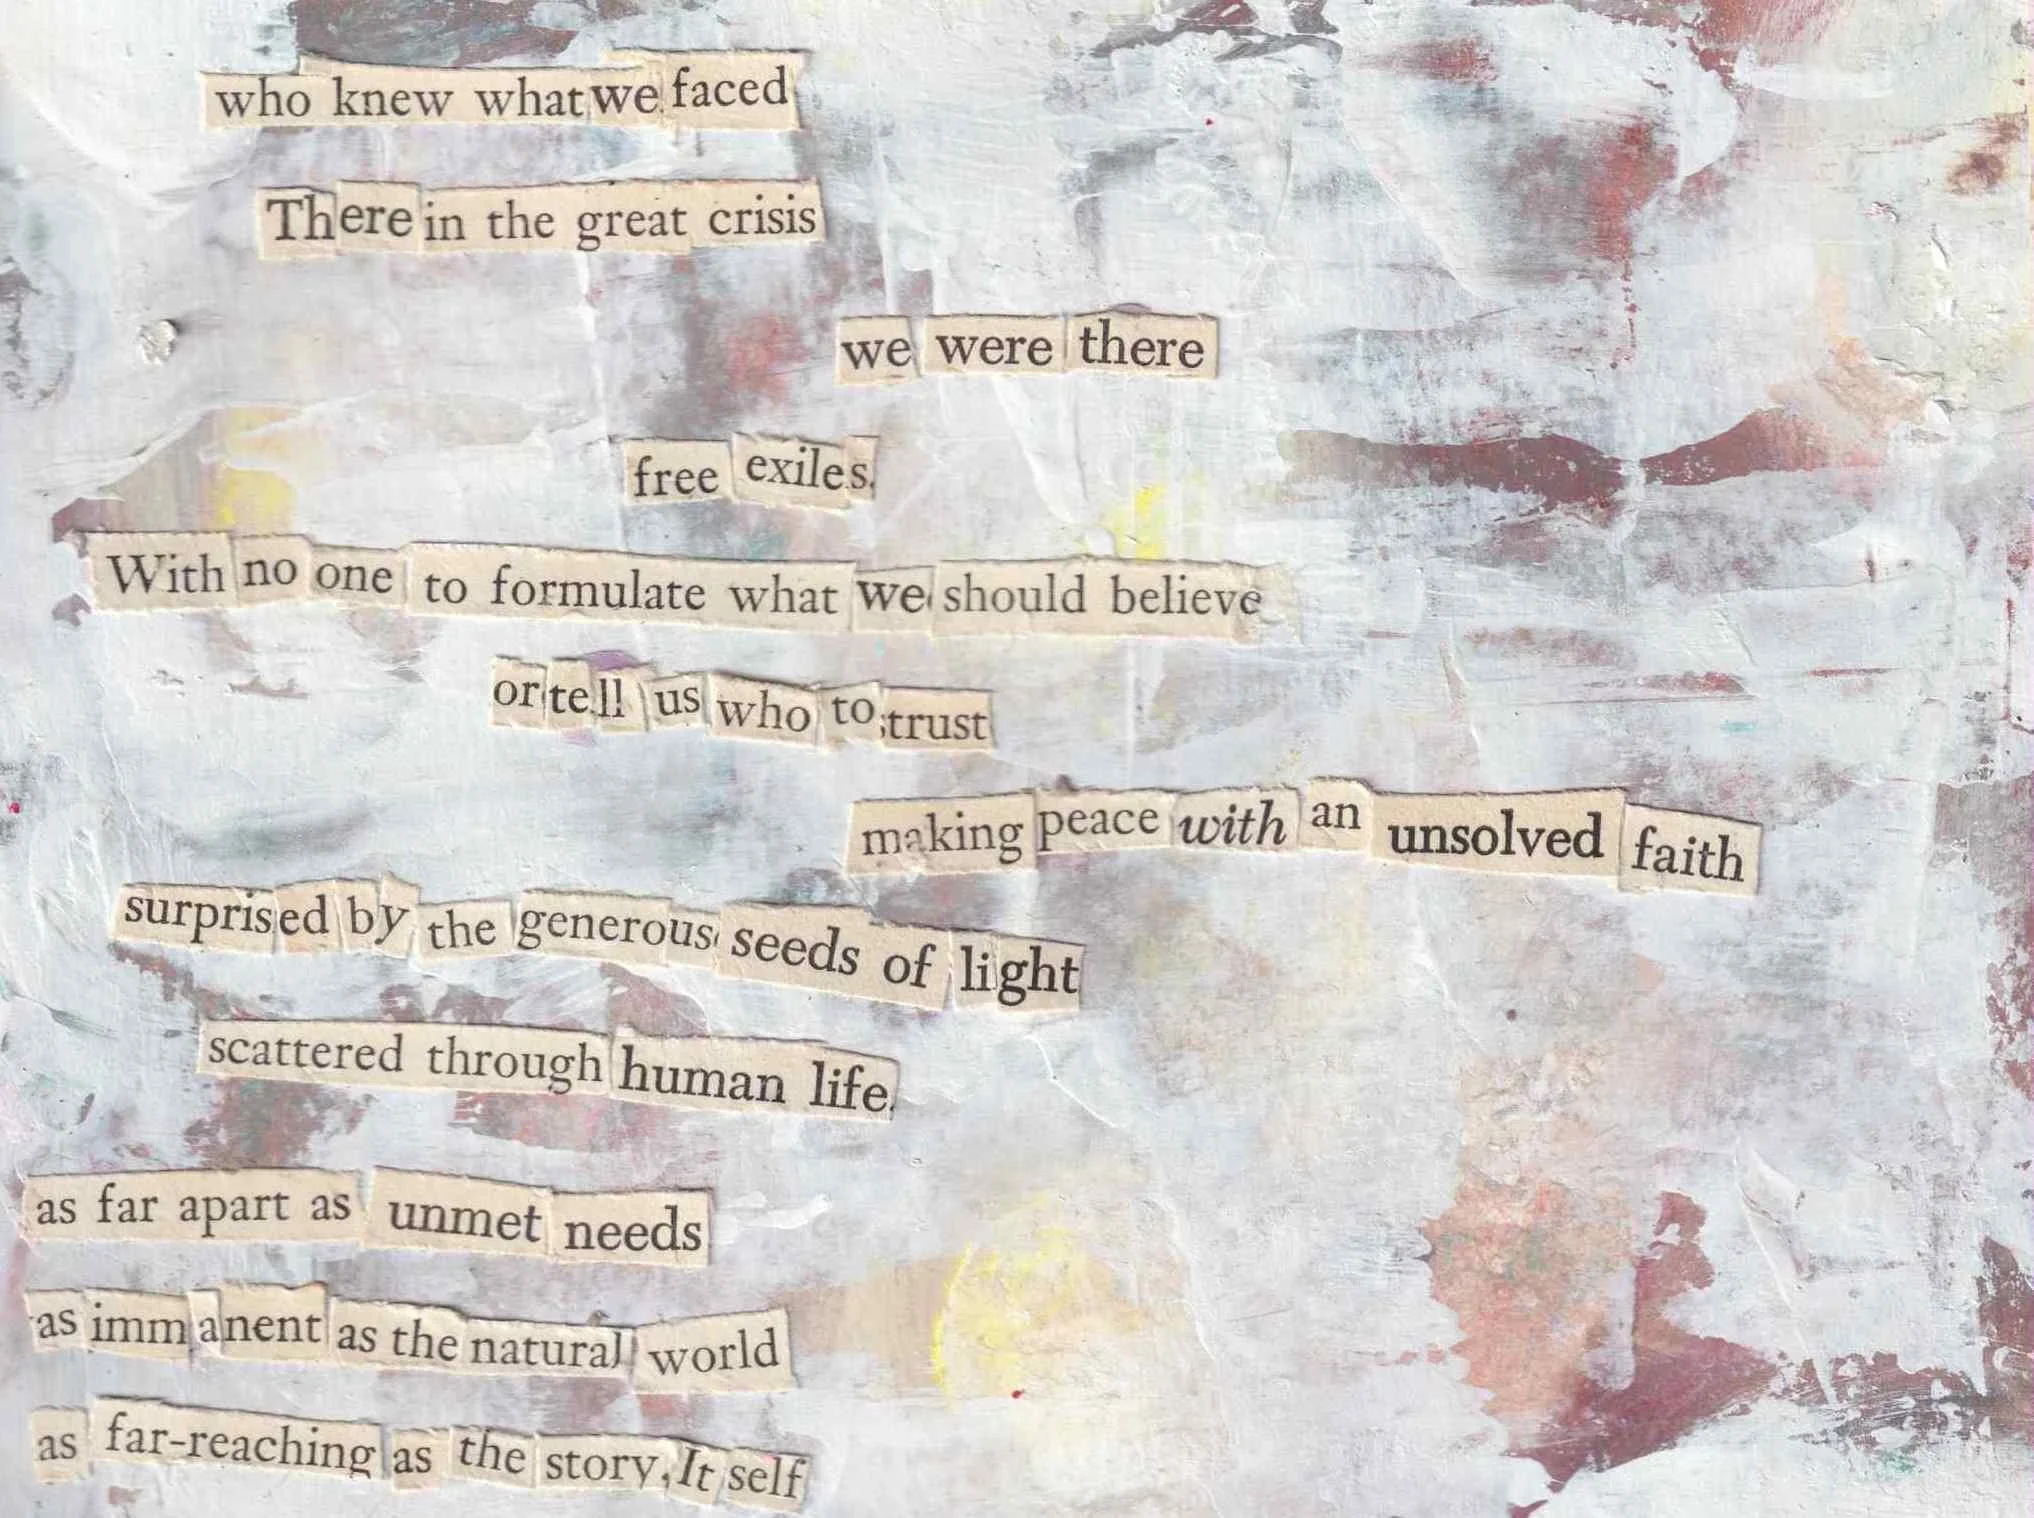 who knew what we faced
There in the great crisis
we were there
free exiles.
With no one to formulate what we should believe
or tell us who to trust
making peace with an unsolved faith
surprised by the generous seeds of light
scattered through human life.
as far apart as unmet needs
as immanent as the natural world
as far-reaching as the story, It self